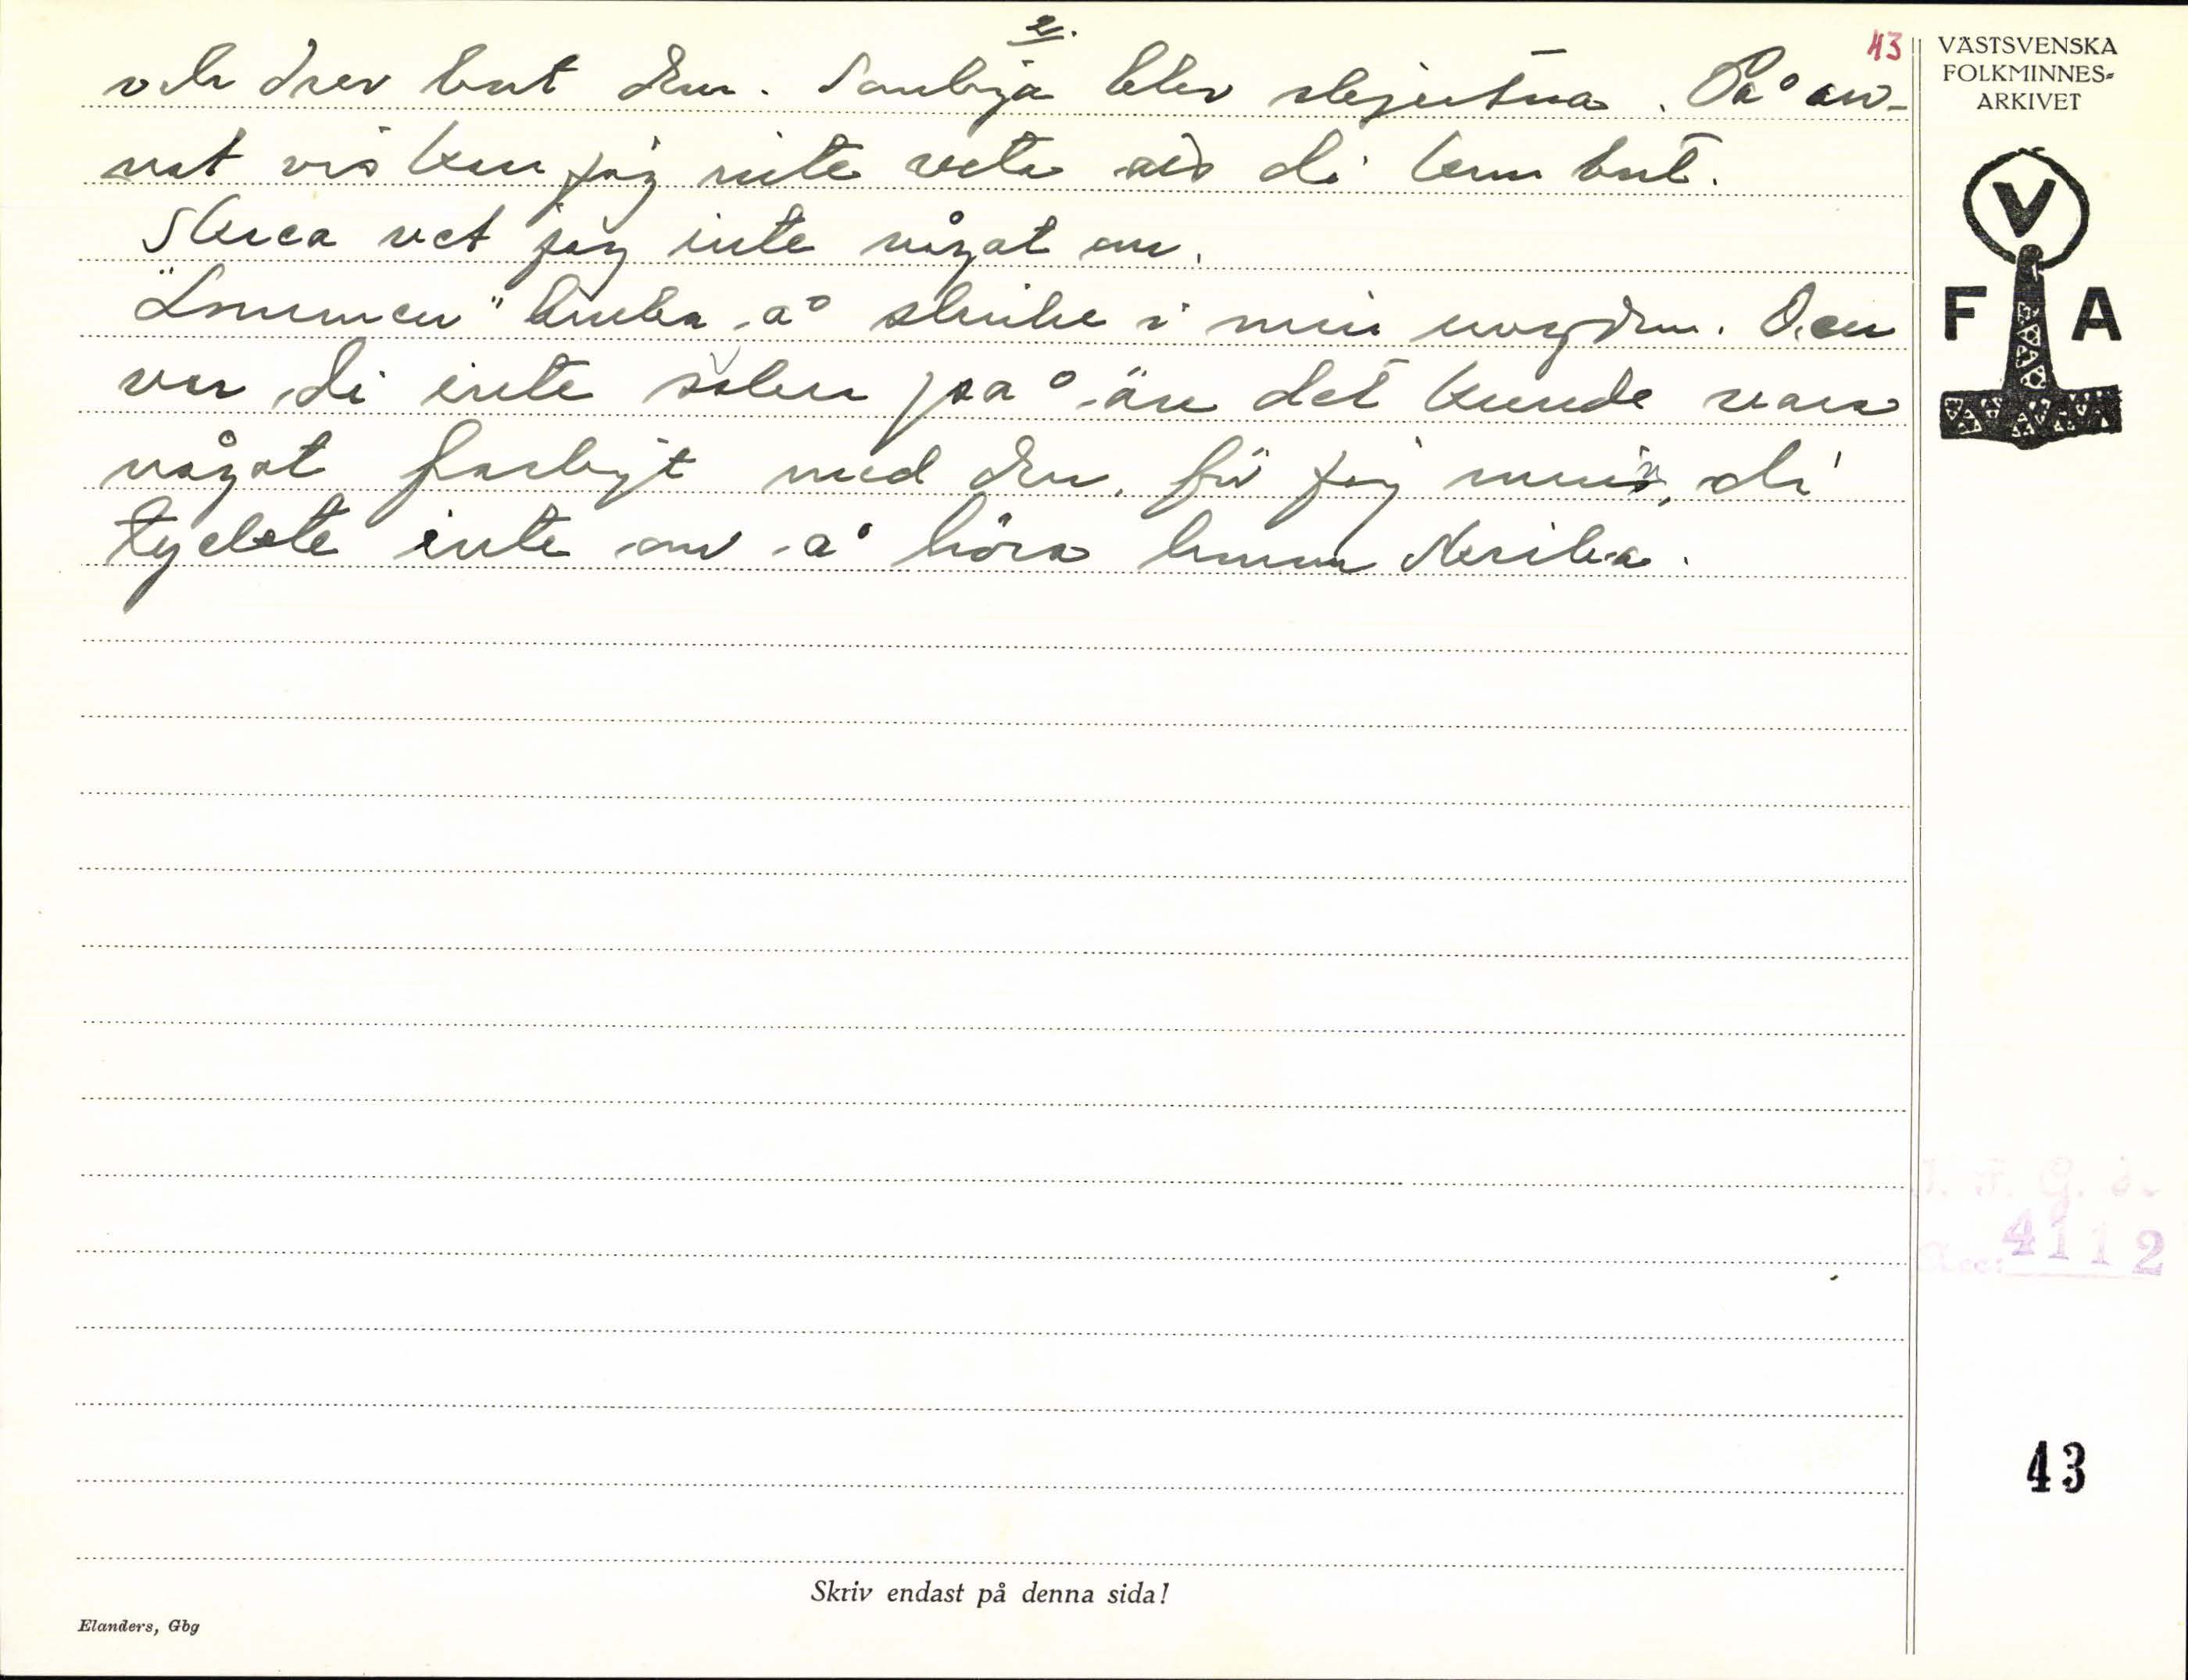 2.
43
och drev bort dem. Somliga blev skjutna. På an-
nat vis kan jag inte veta att di kom bort.
Skrea vet jag inte något om.
"Lommen" bruka å skrike i min ungdom. Den
var di inte säker på än det kunde vara
något farligt med den, för jag minns, di
tyckte inte om å höra honom skrika.
VÄSTSVENSKA
FOLKMINNES-
ARKIVET
V
F A
4112
43
Skriv endast på denna sida!
Elanders, Gbg